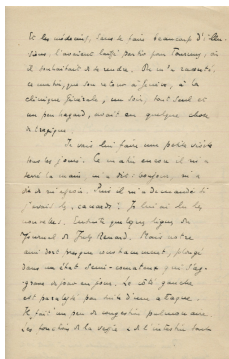 Et les médecins, sans se faire beaucoup d'illu-
sions, l'avaient laissé partir pour Touraine, où
il souhaitait de se rendre. On m'a raconté,
ce matin, que son retour à Genève, à la
clinique Générale, un soir, tout seul et
un peu hagard, avait eu quelque chose
de tragique.
Je vais lui faire une petite visite
tous les jours. Ce matin encore il m'a
serré la main, m'a dit : bonjour, m'a
Puis il m'a demandé si
Je lui ai lu les
nouvelles. Ensuite quelques lignes du
Journal de Jules Renard. Mais notre
ami dort presque constamment, plongé
dans un état semi-comateux qui s'ag-
grave de jour en jour. Le côté gauche
est paralysé par suite d'une attaque.
Il fait un peu de congestion pulmonaire.
Les fonctions de la vessie et de l'intestin